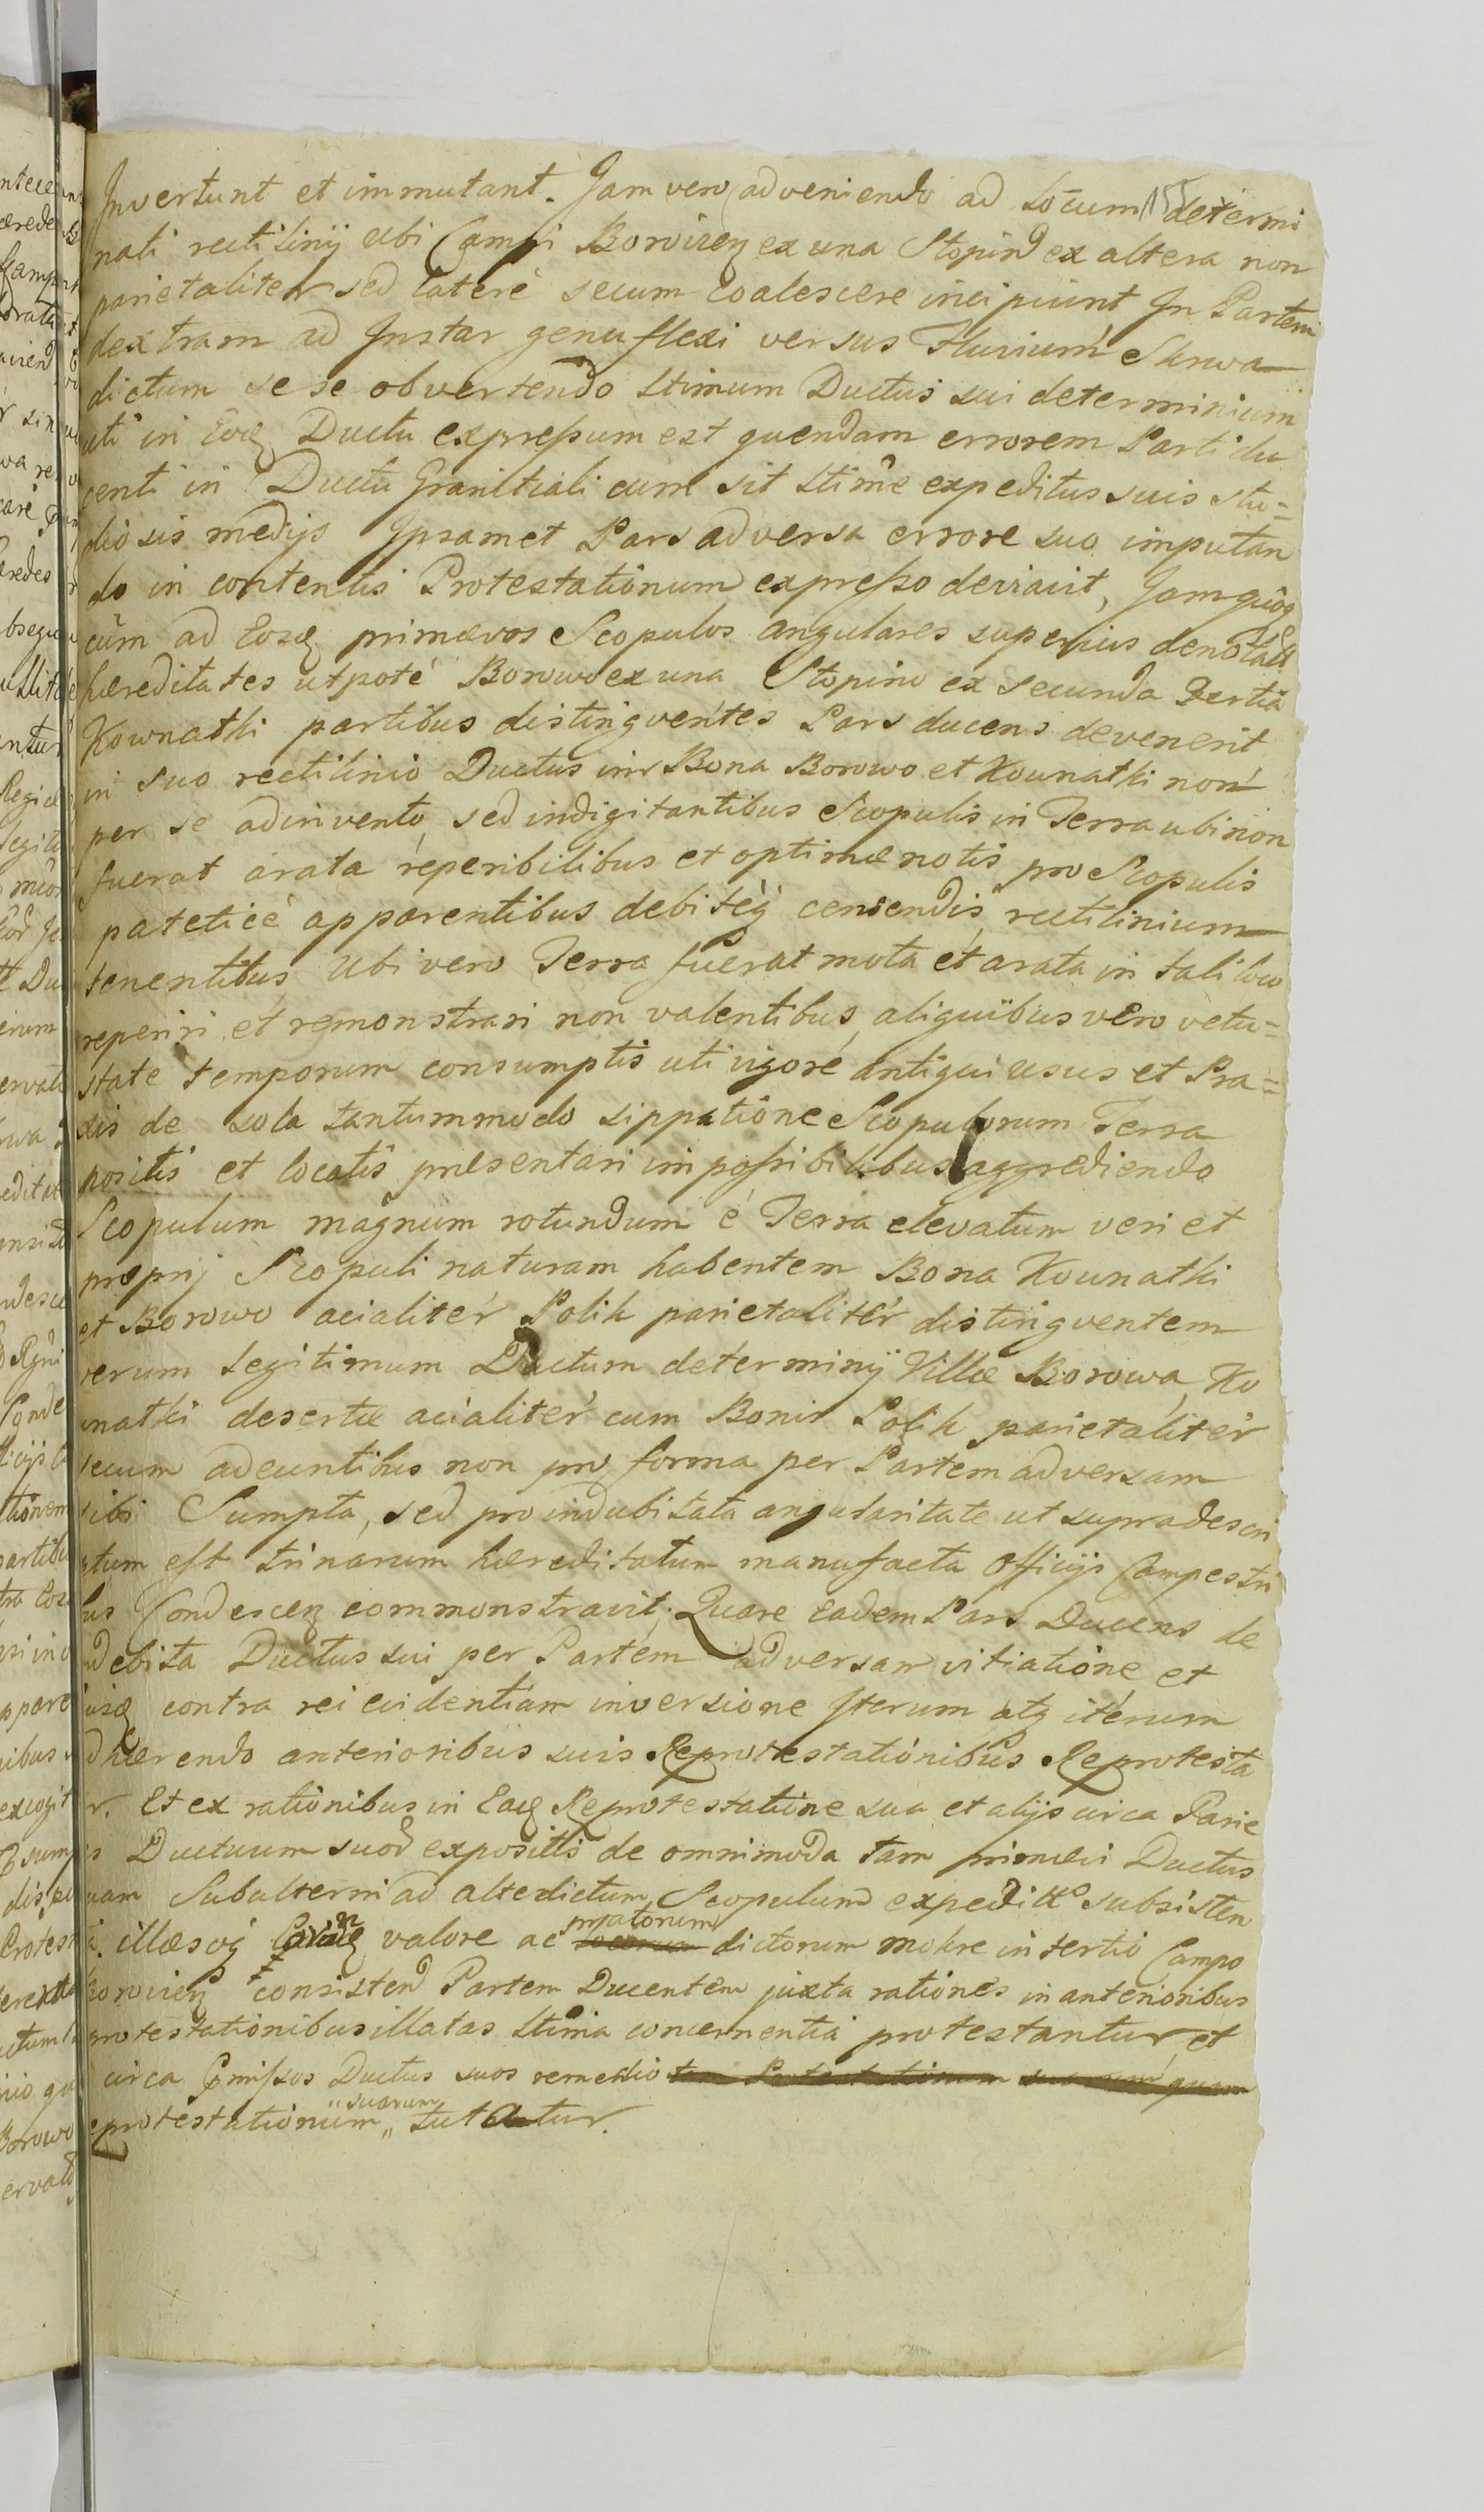 Invertunt et immutant. Jam vero adveniendo ad Locum determi
nati rectilinij ubi Campi Borovien ex una Stopin ex altera non
parietaliter sed lateré secum coalescere incipiunt In Partem
dextram ad Instar genuflexi versus Fluvium Skrwa
dictum sese obvertendo Ltimum Ductus sui determinium
uti in Eoq Ductu expressum est quendam errorem Parti du
centi in Ductu Granitiali cum sit Ltime expeditus suis stu=
diosis medijs Ipsamet Pars adversa errore suo imputan
do in contentis Protestationum expresso deviavit, Jam quoq
cum ad Eosq primævos Scopulos angulares superius denotatt
hæreditates utpoté Borowo ex una Stopino ex secunda Tertia
Kownathi partibus distingventes Pars ducens devenerit
in suo rectilinio Ductus inr Bona Borowo et Kounathi non
per se adinvento, sed indigitantibus Scopulis in Terra ubi non
fuerat arata reperibilibus et optimæ notis pro Scopulis
pateticé apparentibus debitéq censendis, rectilinium
tenentibus, Ubi vero Terra fuerat mota et arata in tali loco
reperiri et remonstrari non valentibus, aliquibus vero vetu=
state temporum consumptis uti vigoré antiqui usus et Pra=
xis de sola tantummodo sippatione Scopulorum Terra
positis et locatis præsentari impossibilibus aggrediendo
Scopulum magnum rotundum é Terra elevatum veri et
proprij Scopuli naturam habentem Bona Kounathi
et Borowo acialiter Polik parietalitér distingventem
verum Legitimum Ductum determinij Villæ Borowa, Ko
unathi desertæ acialitér cum Bonis Polik parietalitér
secum adeuntibus non pro forma per Partem adversam
sibi Sumpta, sed pro indubitata angularitate ut supradescri
ptum est trinarum hæreditatum manufacta Officijs Campestri
bus Condescen commonstravit; Quare Eadem Pars Ducens de
indebita Ductus sui per Partem adversam vitiatione et
contra rei evidentiam inversione Iterum atq iterum
adhærendo anterioribus suis Reprotestationibus Reprotesta
r. Et ex rationibus in Eaq Reprotestatione sua et alijs circa Parie
s Ductuum suor expositis de omnimoda tam primævi Ductus
quam Subalterni ad altedictum Scopulum expeditto subsisten
illæsoq valore ac pratorum dictorum mokre in tertio Campo
Borovien consisten Partem Ducentem juxta rationes in anterioribus
protestationibus illatas Ltima concernentia protestantur et
circa Præmissos Ductus suos remedio tam Protestationum suarum quam
eprotestationum „suarum„ tutatur.